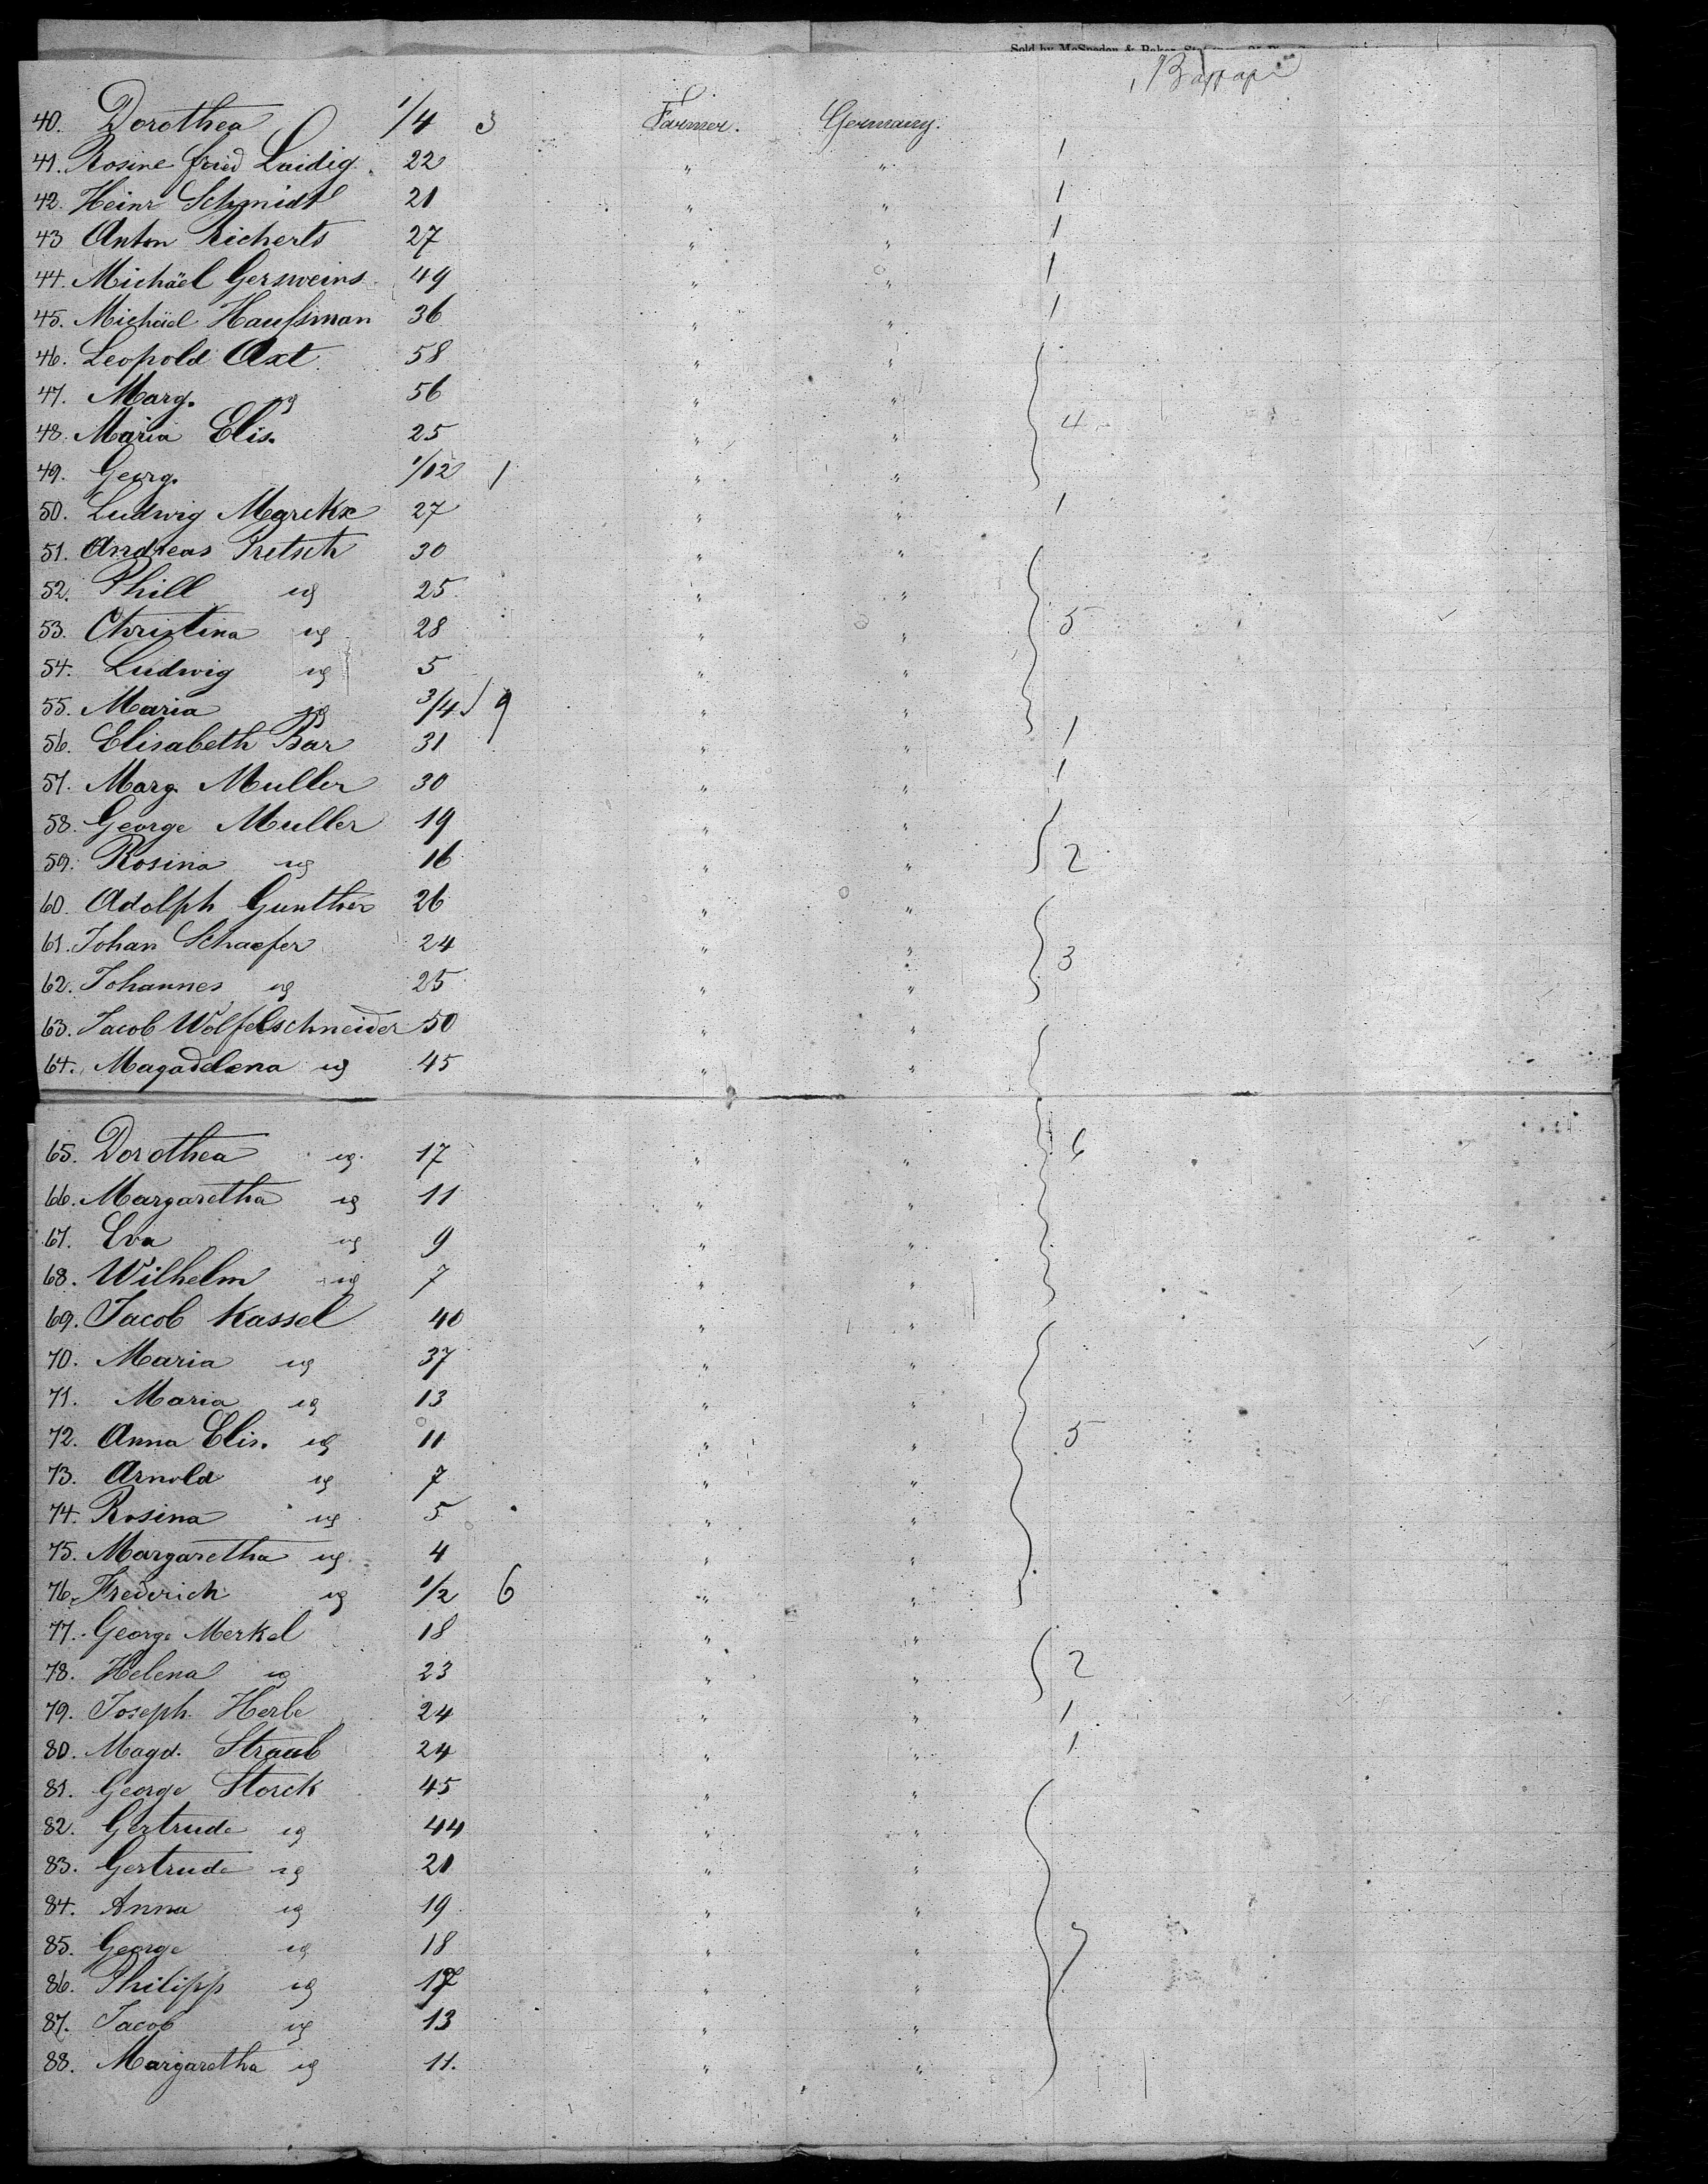 Sold by McSpedon & Baker,
Baggage
40. Dorothea 1/4 3 Farmer. Germany.
41. Rosine fried Laidig. 22 " " 1
42. Heinr Schmidt 21 " " 1
43 Anton Richerts 27 " " 1
44. Michäel Gersweins 49 " " 1
45. Michäel Haufsman 36 " " 1
46. Leopold Axt 58 " "
47. Marg. " 56 " "
48. Maria Elis. 25 " " 4
49. Georg. 1/12 1 " "
50. Ludwig Marckx 27 " " 1
51. Andreas Pretsch 30 " "
52. Phill " 25 " "
53. Christina " 28 " " 5
54. Ludwig " 5 " "
55. Maria " 3/4 9 " "
56. Elisabeth Bar 31 " " 1
57. Marg. Muller 30 " " 1
58. George Muller 19 " "
59. Rosina " 16 " " 2
60. Adolph Gunther 26 " "
61. Johan Schaefer 24 " " 3
62. Johannes " 25 " "
63. Jacob Wolfelschneider 50 " "
64. Magaddena " 45 " "
65. Dorothea " 17 " " 6
66. Margaretha " 11 " "
67. Eva " 9 " "
68. Wilhelm " 7 " "
69. Jacob Kassel 40 " "
70. Maria " 37 " "
71. Maria " 13 " "
72. Anna Elis. " 11 " " 5
73. Arnold " 7 " "
74. Rosina " 5 " "
75. Margaretha " 4 " "
76. Frederich " 1/2 6 " "
77. George Merkel 18 " "
78. Helena " 23 " " 2
79. Joseph Herbe 24 " " 1
80. Magd. Straub 24 " " 1
81. George Storck 45 " "
82. Gertrude " 44 " "
83. Gertrude " 21 " "
84. Anna " 19 " "
85. George " 18 " " 7
86. Philipp " 17 " "
87. Jacob " 13 " "
88. Margaretha " 11. " "